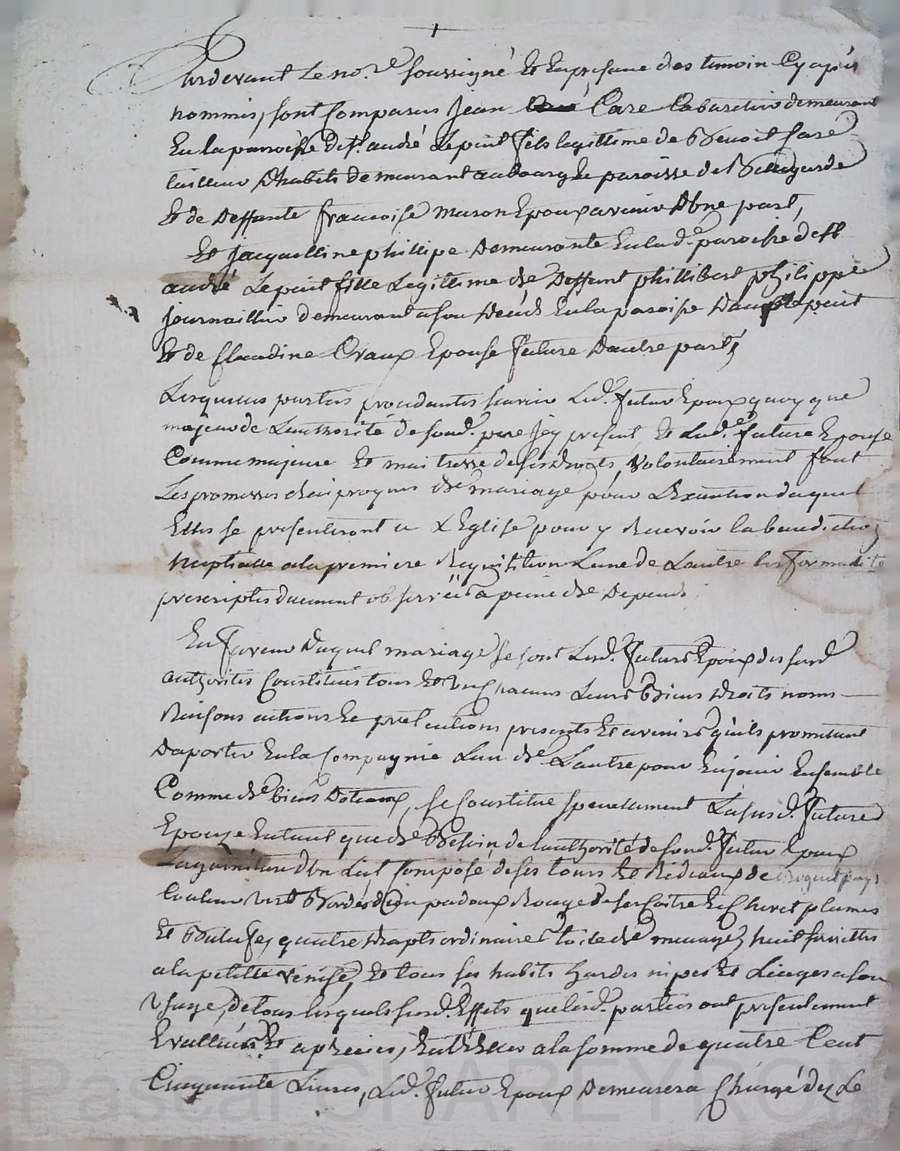 Pardevant Le no.re Soussigné Et En presance des temoin Cy après
nommés, sont Comparus Jean Care Cabaretier demeurant
En La parroisse de St. andré Le puit fils legittime de Benoit Care
tailleur D'habits demeurant au bourg Et paroisse de Bellegarde
Et de Deffunte francoise mason Epoux avenir D'une part,
Et jacquelline philipe Demeurante En lad.e paroisse de st
andré Le puit fille Legittime de Deffunt phillibert philippe
journaillier demeurant a son Décéds En la paroise Le puit
Et de Claudine Epouse future D'autre part,
Lesquelles parties procedantes scavoir Led. futur Epoux quoy que
majeur de L'authorité de sond. pere icy present Et Lad.e future Epouse
Comme majeure Et maitresse de ses droits, volontairement font
Les promesses de mariage pour L'Execution duquel
Elles se presenteront a L'Eglise pour y Recevoir la benediction
Nuptialle a la premiere Requisition L'une de L'autre les formalités
prescriptes duement observées a peine de Depends.
En faveur Duquel mariage se sont Lesd. futurs Epoux des surd.
authorités Constitués tous Et Un Chacuns Leurs Biens Droits noms
Raisons actions Et pretentions presents Et avenirs qu'ils promettent
D'aporter En la Compagnie L'un de L'autre pour En jouir Ensemble
Comme de biens Dotaux, se Constitue specialement Lasusd. future
Epouze En tant que de Besoin de l'authorité de sond. futur Epoux
La garniture D'un Lict Composé de ses tours Et Rideaux de
Couleur vert Bordés d'un padoux Rouge de ses Coitre Et Chevet plumes
Et Balufe, quatre draps ordinaires toile de menage, huit serviettes
a la petitte venise, Et tous ses habits hardes nipes Et Linges a son
Usage, de tous lesquels surd. Effets quelesd. parties ont presentement
Evalliués Et apreciés, Entr'Elles a la somme de quatre Cent
Cinquante Livres, Led. futur Epoux Demeurera Chargé dez Le
Pascal CHAREYRON